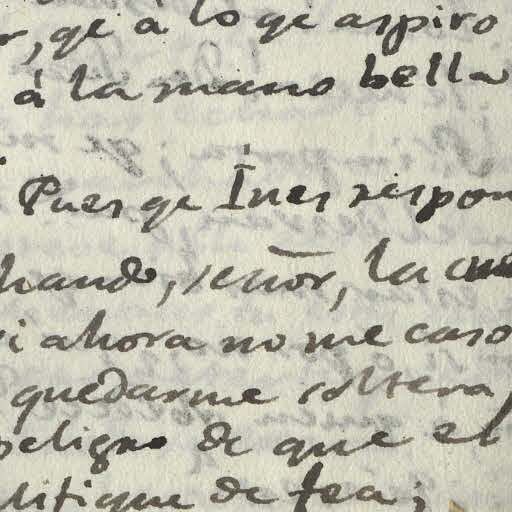 r, qe à lo qe aspiro
à la mano bella
Pues qe Ines respon
hando, señor, la cue
i ahora no me caso
quedarme soltera,
peligro de que el
litique de fea;